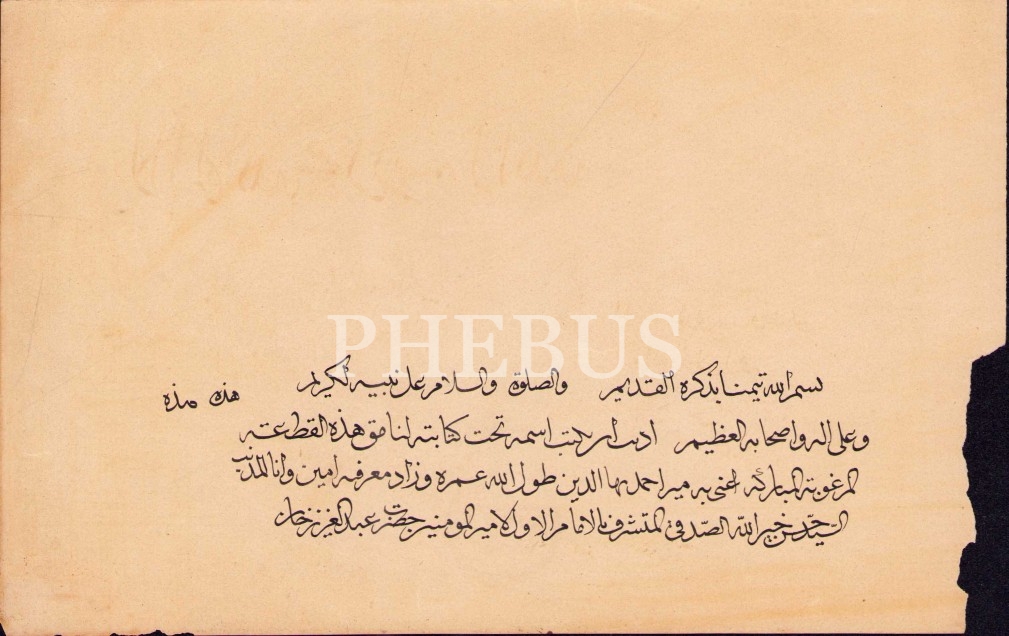 PHEBUS
بسم الله تيمنا بذكره القديم والصلوة والسلام على نبيه الكريم
هذه هذه
وعلى اله واصحابه العظيم اذنت ان يكتب اسمه تحت كتابته لنامق هذه القطعته
المرغوبته المباركه اعنى به مير احمد بها الدين طول الله عمره وزاد معرفه امين وانا المذنب
السيد حسن خير الله المتشرف بالامام الاول لامير المومنين حضرت عبد العزيز خان